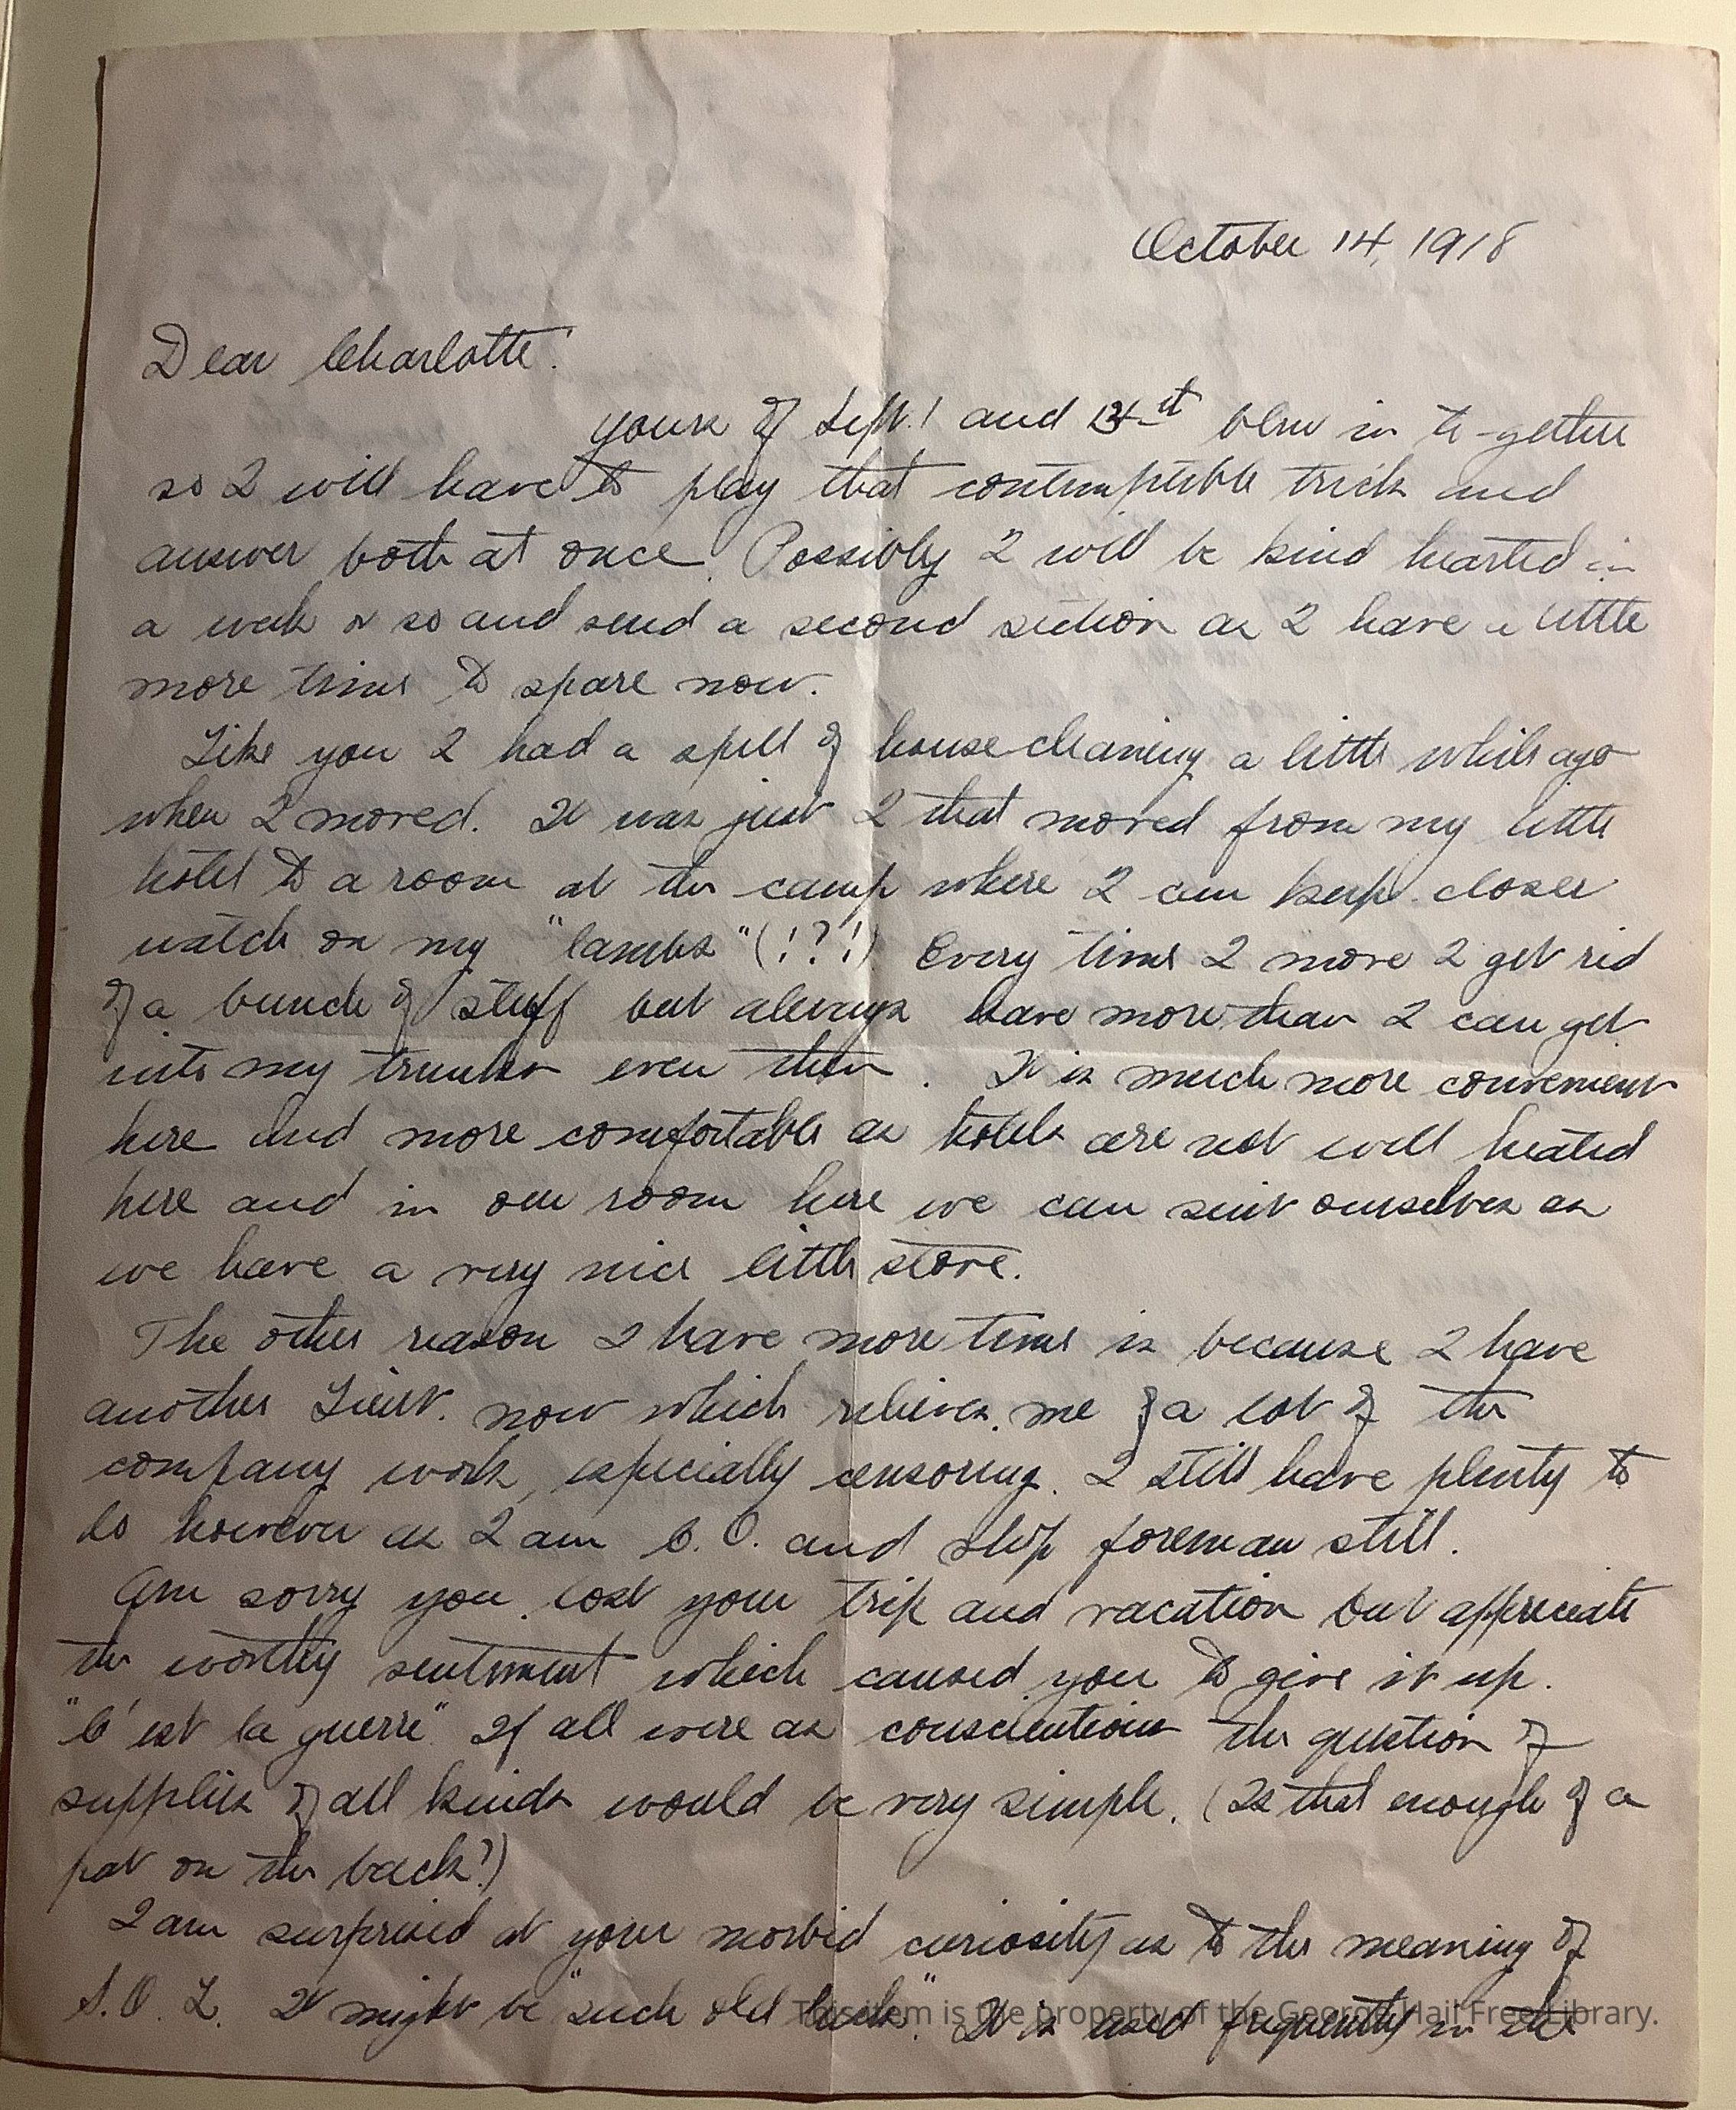 October 14, 1918
Dear Charlotte:
yours of Sept. 1 and blew in to-gether
so I will have to play that contemptible trick and
answer both at once. Possibly I will be kind hearted in
a week or so and send a second section as I have a little
more time to spare now.
Like you I had a spell of house cleaning a little while ago
when I moved. It was just I that moved from my little
hotel to a room at the camp where I can keep closer
watch on my "lambs" (!?!) Every time I move I get rid
of a bunch of stuff but always have more than I can get
into my trunks even then. It is much more convenient
here and more comfortable as hotels are not well heated
here and in our room here we can suit ourselves as
we have a very nice little stove.
The other reason I have more time is because I have
another Lieut. now which relieves me of a lot of the
company work, especially censoring. I still have plenty to
do however as I am C.O. and shop foreman still.
Am sorry you lost your trip and vacation but appreciate
the worthy sentiment which caused you to give it up.
"C'est la guerre" If all were as conscientious the question of
supplies of all kinds would be very simple. (Is that enough of a
pat on the back?)
I am surprised at your morbid curiosity as to the meaning of
S.O.L. It might be "such old luck". It is used frequently in the
This item is the property of the George Hail Free Library.